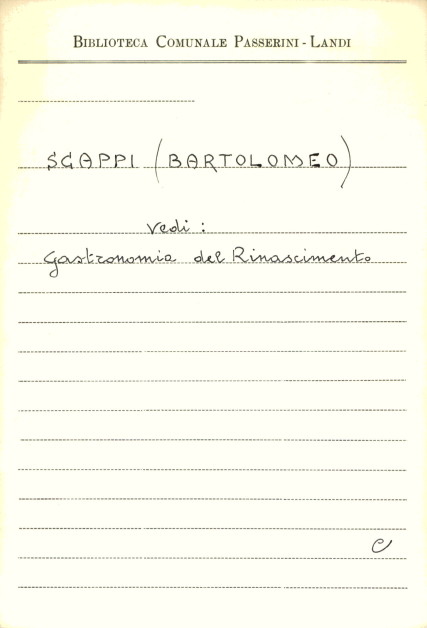 BIBLIOTECA COMUNALE PASSERINI - LANDI
SCAPPI (BARTOLOMEO)
vedi :
Gastronomia del Rinascimento
C